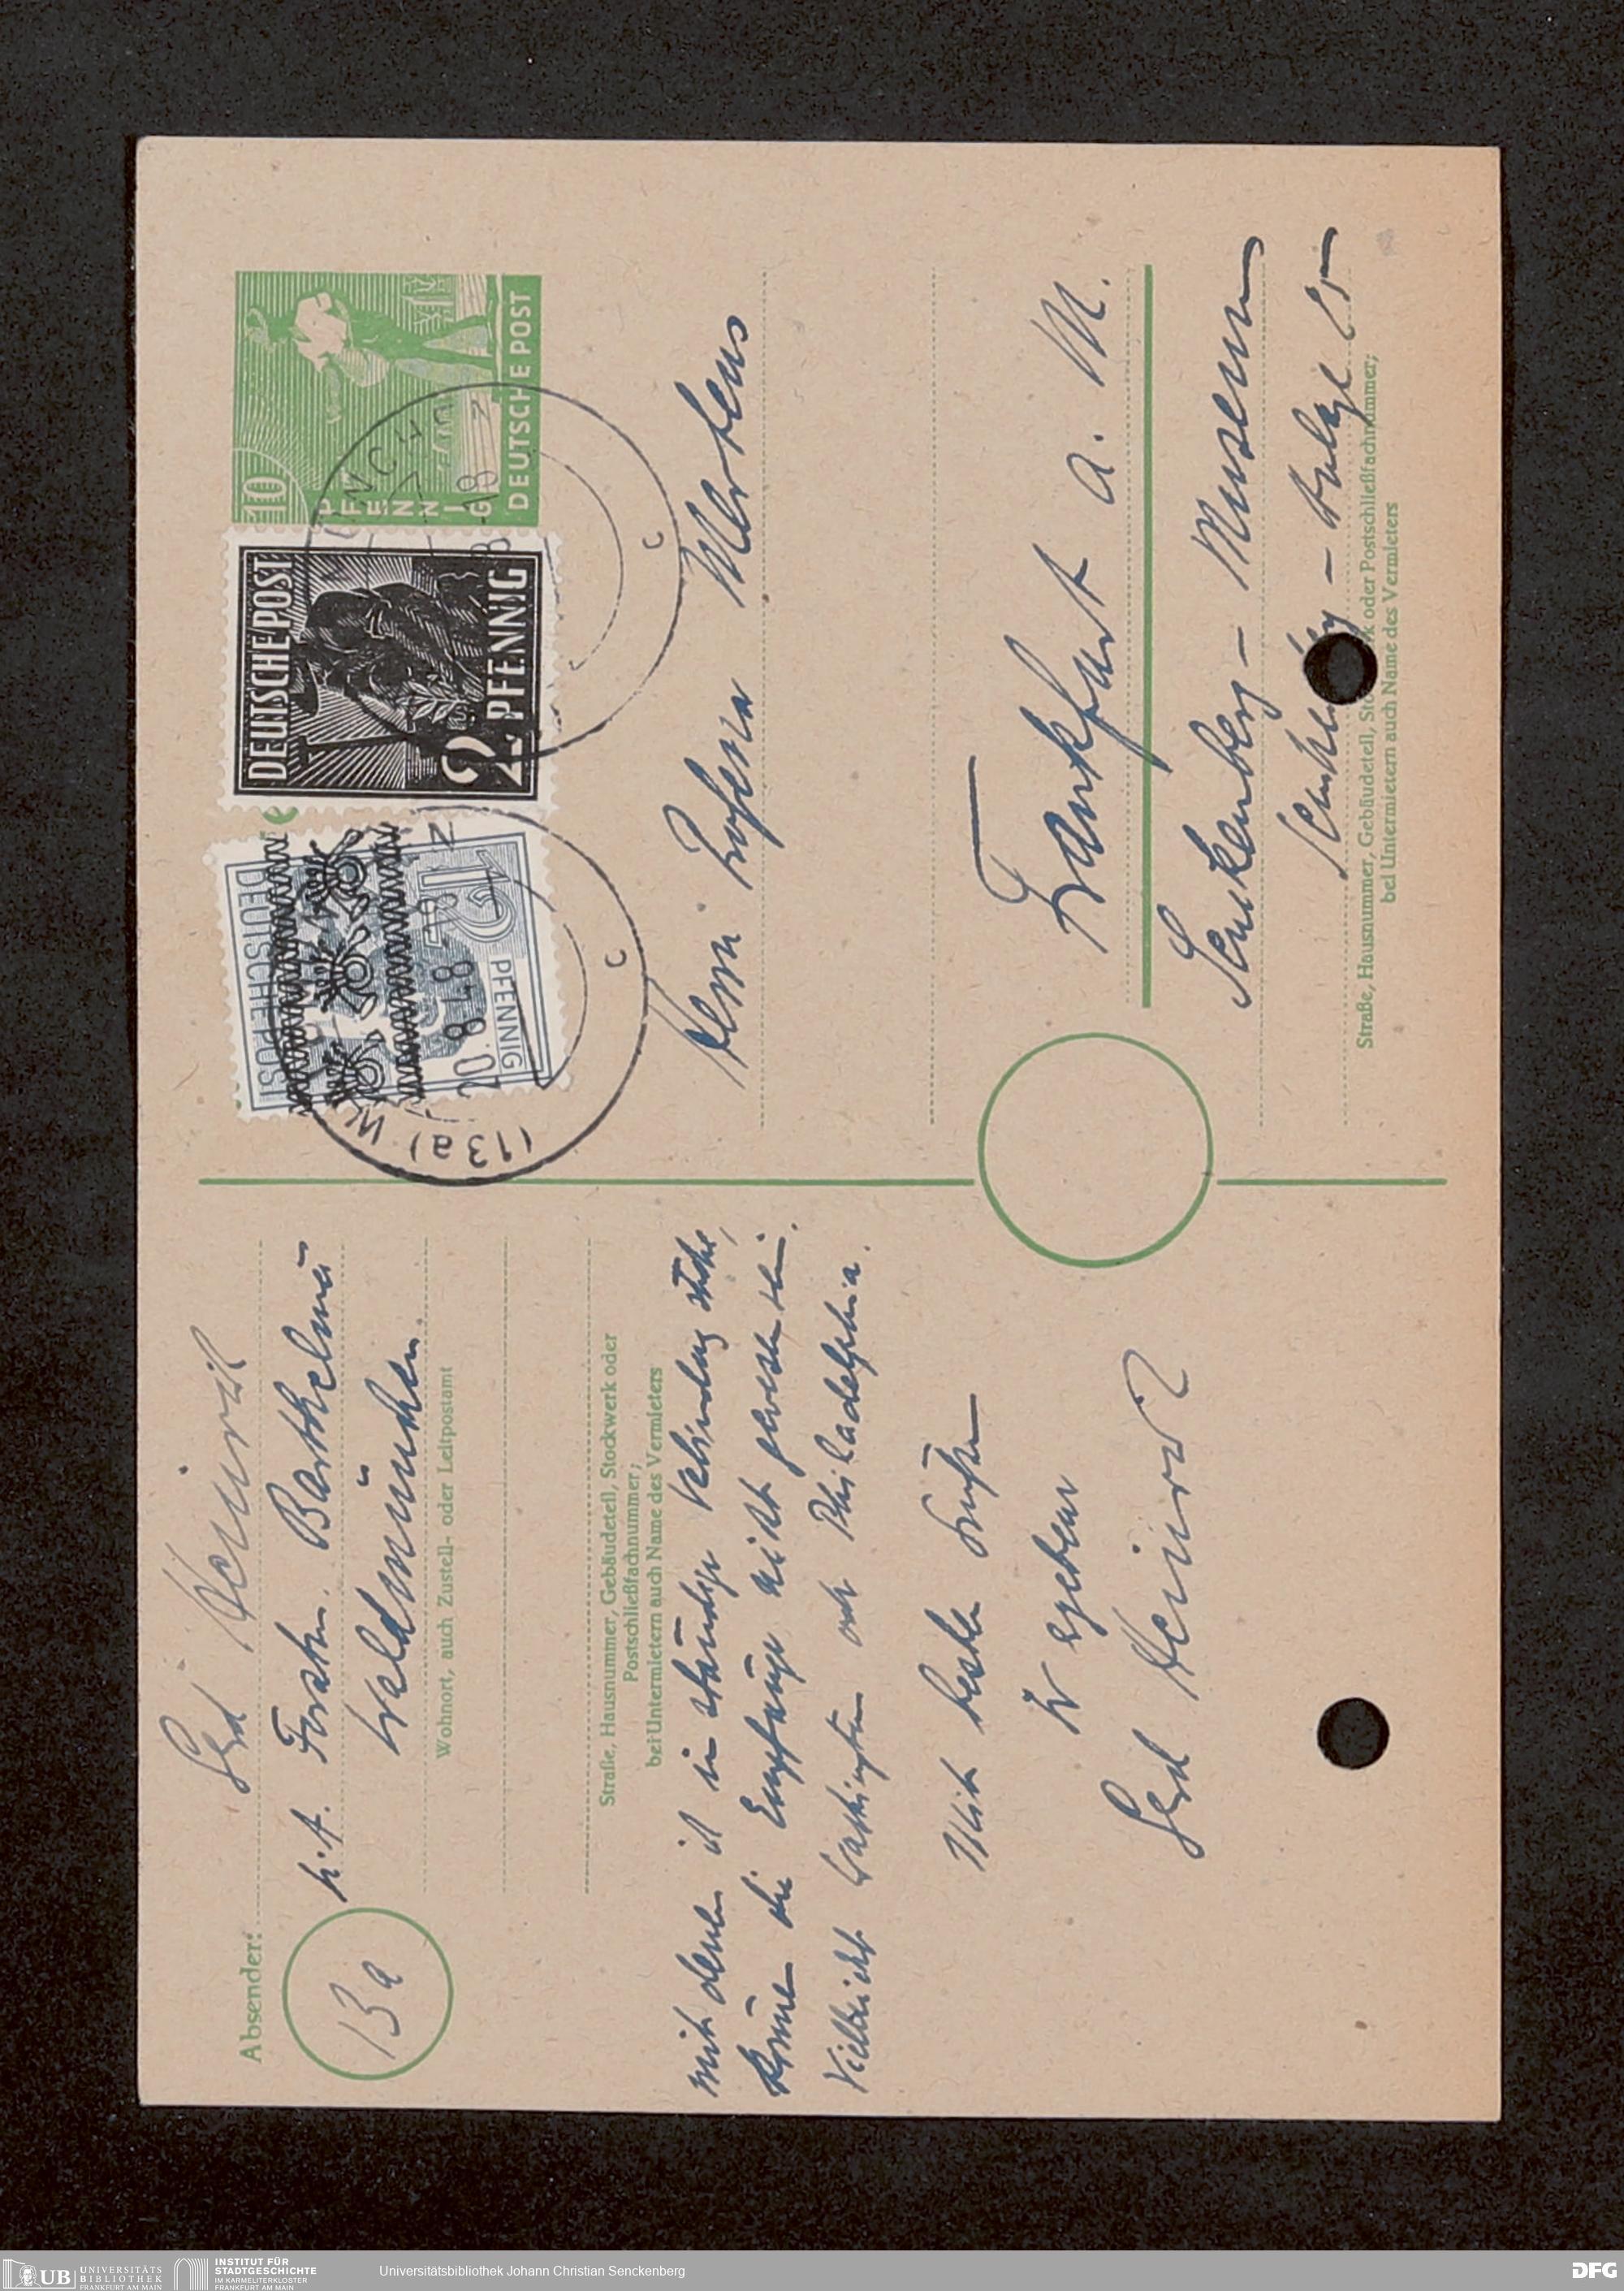 Absender:
Gerd Heinrich
13a
p. A. Forstm. Barthelmes
Waldmünchen.
Wohnort, auch Zustell- oder Leitpostamt
Straße, Hausnummer, Gebäudeteil, Stockwerk oder
Postschließfachnummer;
bei Untermietern auch Name des Vermieters
mit denen ich in ständiger Verbindung stehe,
die Empfänger nicht gewesen sein.
Vielleicht Washington oder Philadelphia.
Mit besten Grüßen
Ihr ergebener
Gerd Heinrich
DEUTSCHE POST
12 PFENNIG
DEUTSCHE POST
2 PFENNIG
10
PFENNIG
DEUTSCHE POST
(13a) W
20.8.48.-18
c
c
Herrn Professor Mertens
Frankfurt a. M.
Senckenberg-Museum
Senckenberg-Anlage 25
Straße, Hausnummer, Gebäudeteil, Stockwerk oder Postschließfachnummer;
bei Untermietern auch Name des Vermieters
UB UNIVERSITÄTS
BIBLIOTHEK
FRANKFURT AM MAIN
INSTITUT FÜR
STADTGESCHICHTE
IM KARMELITERKLOSTER
FRANKFURT AM MAIN
Universitätsbibliothek Johann Christian Senckenberg
DFG